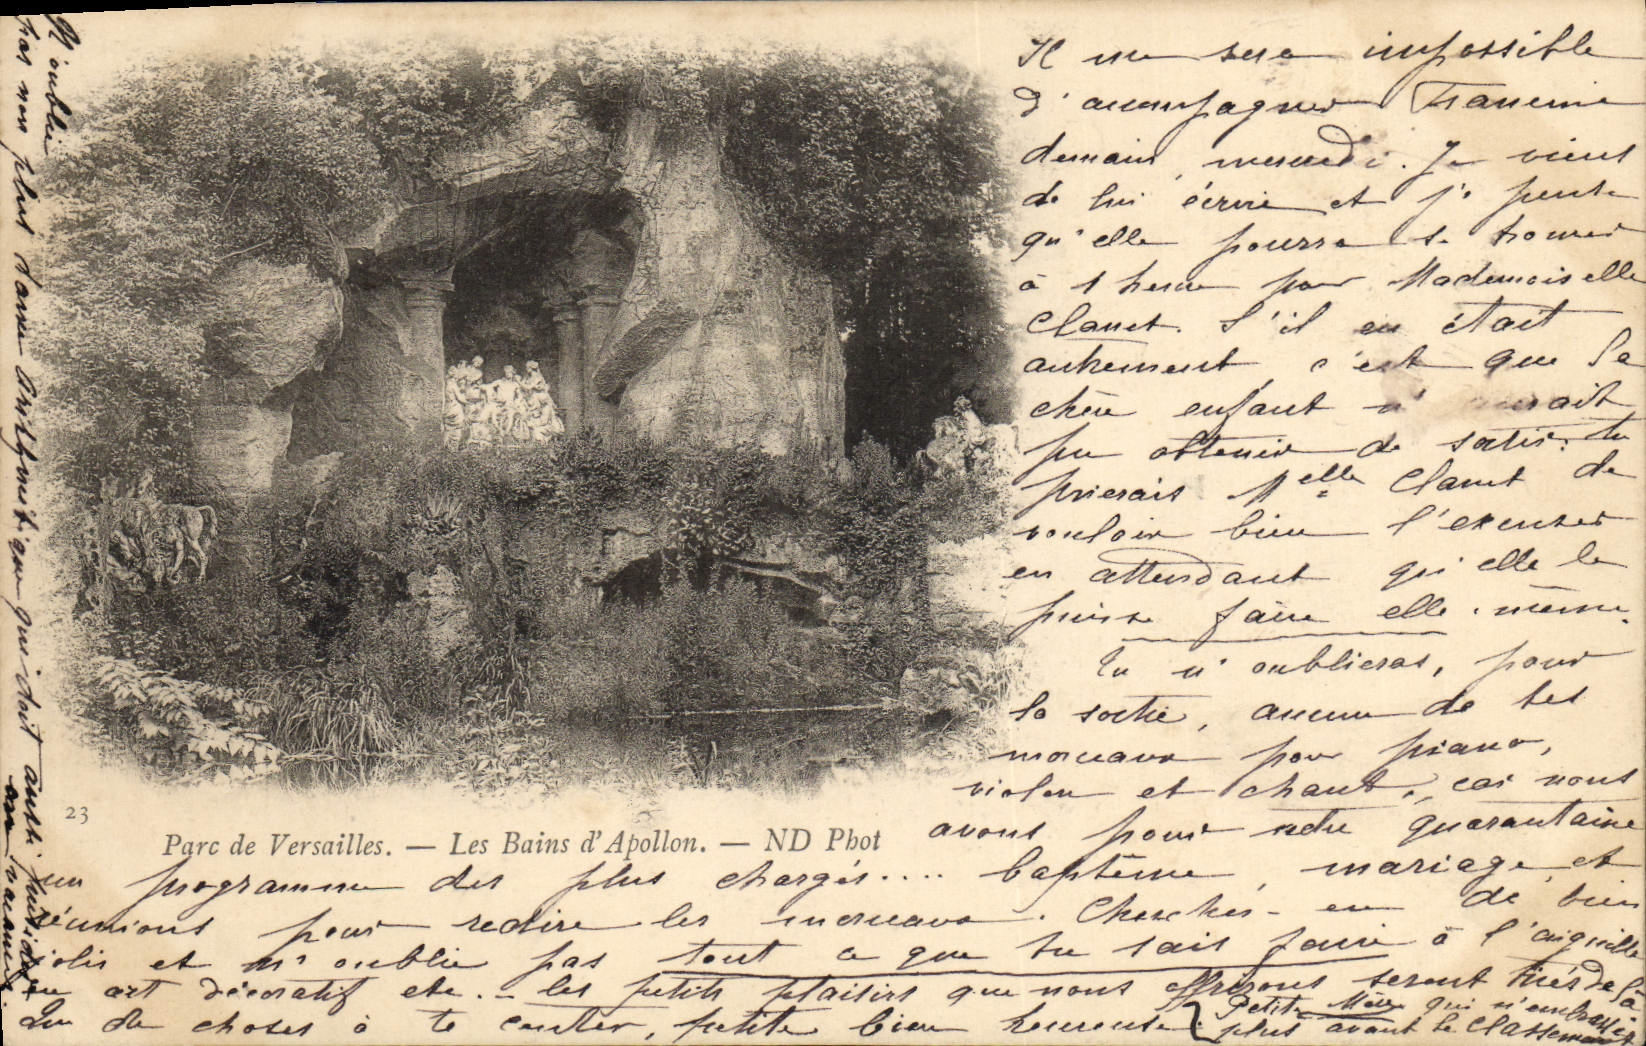 Il me sera impossible
d'accompagner Francine
demain, mercredi. Je viens
de lui écrire et j'e pense
qu'elle pourra se trouver
à 1 heure pour Mademoiselle
Clanet. S'il en était
autrement c'est que la
chère enfant n'aurait
pu obtenir de sortir: tu
prierais Melle Clanet de
vouloir bien l'excuser
en attendant qu'elle le
puisse faire elle-même.
Tu n'oublieras, pour
la sortie, aucun de tes
morceaux pour piano,
violon et chant, car nous
avons pour notre quarantaine
23
Parc de Versailles. — Les Bains d'Apollon. — ND Phot
un programme des plus chargés.... baptême, mariage et
réunions pour redire les morceaux. Cherches-en de bien
jolis et n'oublie pas tout ce que tu sais faire à l'aiguille
en art décoratif etc. - les petits plaisirs que nous offrirons seront tirés de là
Que de choses à te conter, petite bien heureuse.
Petite Mère qui n'embrasse
plus avant le Classement
N'oublie
pas non plus d'arithmétique qui doit aussi